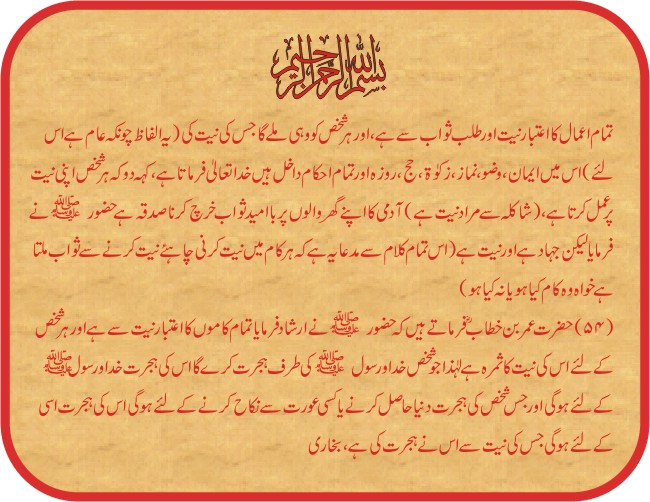 بسم اللہ الرحمن الرحیم
تمام اعمال کا اعتبار نیت اور طلب ثواب سے ہے، اور ہر شخص کو وہی ملے گا جس کی نیت کی (یہ الفاظ چونکہ عام ہے اس
لئے) اس میں ایمان، وضو، نماز، زکوٰۃ، حج، روزہ اور تمام احکام داخل ہیں خدا تعالیٰ فرماتا ہے، کہہ دو کہ ہر شخص اپنی نیت
پر عمل کرتا ہے، (شاکلہ سے مراد نیت ہے) آدمی کا اپنے گھر والوں پر با امید ثواب خرچ کرنا صدقہ ہے حضور ﷺ نے
فرمایا لیکن جہاد ہے اور نیت ہے (اس تمام کلام سے مدعا یہ ہے کہ ہر کام میں نیت کرنی چاہئے نیت کرنے سے ثواب ملتا
ہے خواہ وہ کام کیا ہو یا نہ کیا ہو)
(۵۴) حضرت عمر بن خطابؓ فرماتے ہیں کہ حضور ﷺ نے ارشاد فرمایا تمام کاموں کا اعتبار نیت سے ہے اور ہر شخص
کے لئے اس کی نیت کا ثمرہ ہے لہٰذا جو شخص خدا و رسول ﷺ کی طرف ہجرت کرے گا اس کی ہجرت خدا اور رسول ﷺ
کے لئے ہوگی اور جس شخص کی ہجرت دنیا حاصل کرنے یا کسی عورت سے نکاح کرنے کے لئے ہوگی اس کی ہجرت اسی
کے لئے ہوگی جس کی نیت سے اس نے ہجرت کی ہے، بخاری